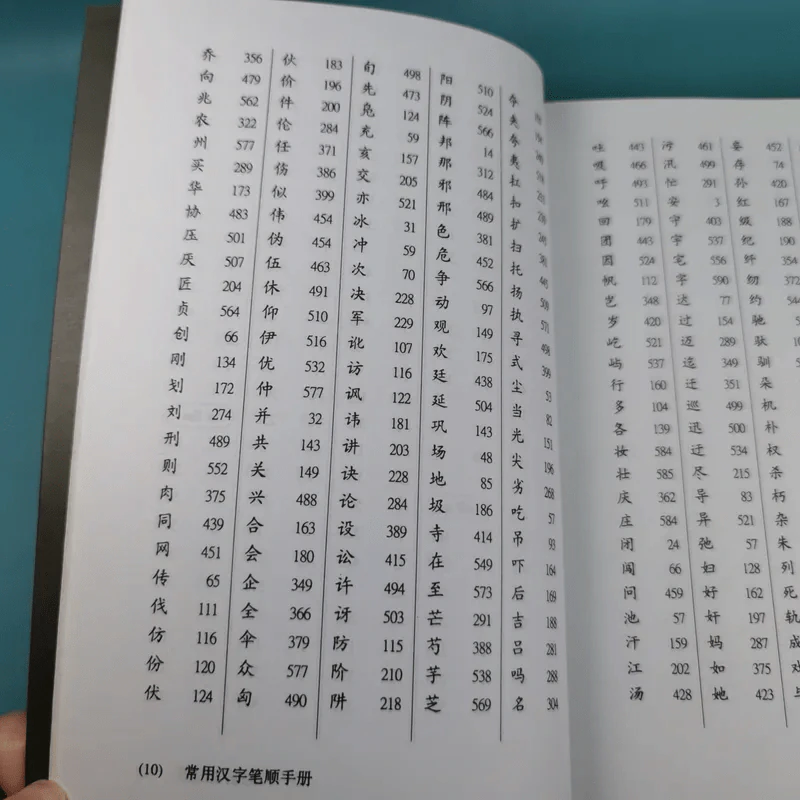 乔 356
向 479
兆 562
农 322
州 577
买 289
华 173
协 483
压 501
厌 507
匠 204
贞 564
创 66
刚 134
划 172
刘 274
刑 489
则 552
肉 375
同 439
网 451
传 65
伐 111
仿 116
份 120
伏 124
伙 183
价 196
件 200
伦 284
任 371
伤 386
似 399
伟 454
伪 454
伍 463
休 491
仰 510
伊 516
优 532
仲 577
并 32
共 143
关 149
兴 488
合 163
会 180
企 349
全 366
伞 379
众 577
匈 490
旬 498
先 473
凫 124
充 59
亥 157
交 205
亦 521
冰 31
冲 59
次 70
决 228
军 229
讹 107
访 116
讽 122
讳 181
讲 203
诀 228
论 284
设 389
讼 415
许 494
讶 503
防 115
阶 210
阱 218
阳 510
阴 524
阵 566
邦 14
那 312
邪 484
邢 489
色 381
危 452
争 566
动 97
观 149
欢 175
廷 438
延 504
巩 143
场 48
地 85
圾 186
寺 414
在 549
至 573
芒 291
芍 388
芋 538
芝 569
夺
夹
夸
夷
扛
扣
扩
扫
托
扬 509
执 571
寻 498
式 399
尘 53
当 82
光 151
尖 196
劣 268
吃 57
吊 93
吓 164
后 169
吉 188
吕 281
吗 288
名 304
(10) 常用汉字笔顺手册
443
466
493
511
回 179
团 443
因 524
帆 112
艺 348
岁 420
屹 521
屿 537
行 160
多 104
各 139
妆 584
壮 585
庆 362
庄 584
闭 24
闯 66
问 459
池 57
汗 159
江 202
汤 428
污 461
汛 499
忙 291
安 3
守 403
宇 537
宅 556
字 590
达 77
过 154
迈 289
迄 349
迁 351
巡 499
迅 500
迂 534
尽 215
导 83
异 521
弛 57
妇 128
好 162
奸 197
妈 287
如 375
她 423
妄 452
存 74
孙 420
红 167
级 188
纪 190
纤 354
纫 372
约 544
驰
驮
驯
朵
机
朴
权
杀
朽
杂
朱
列
死
轨
成